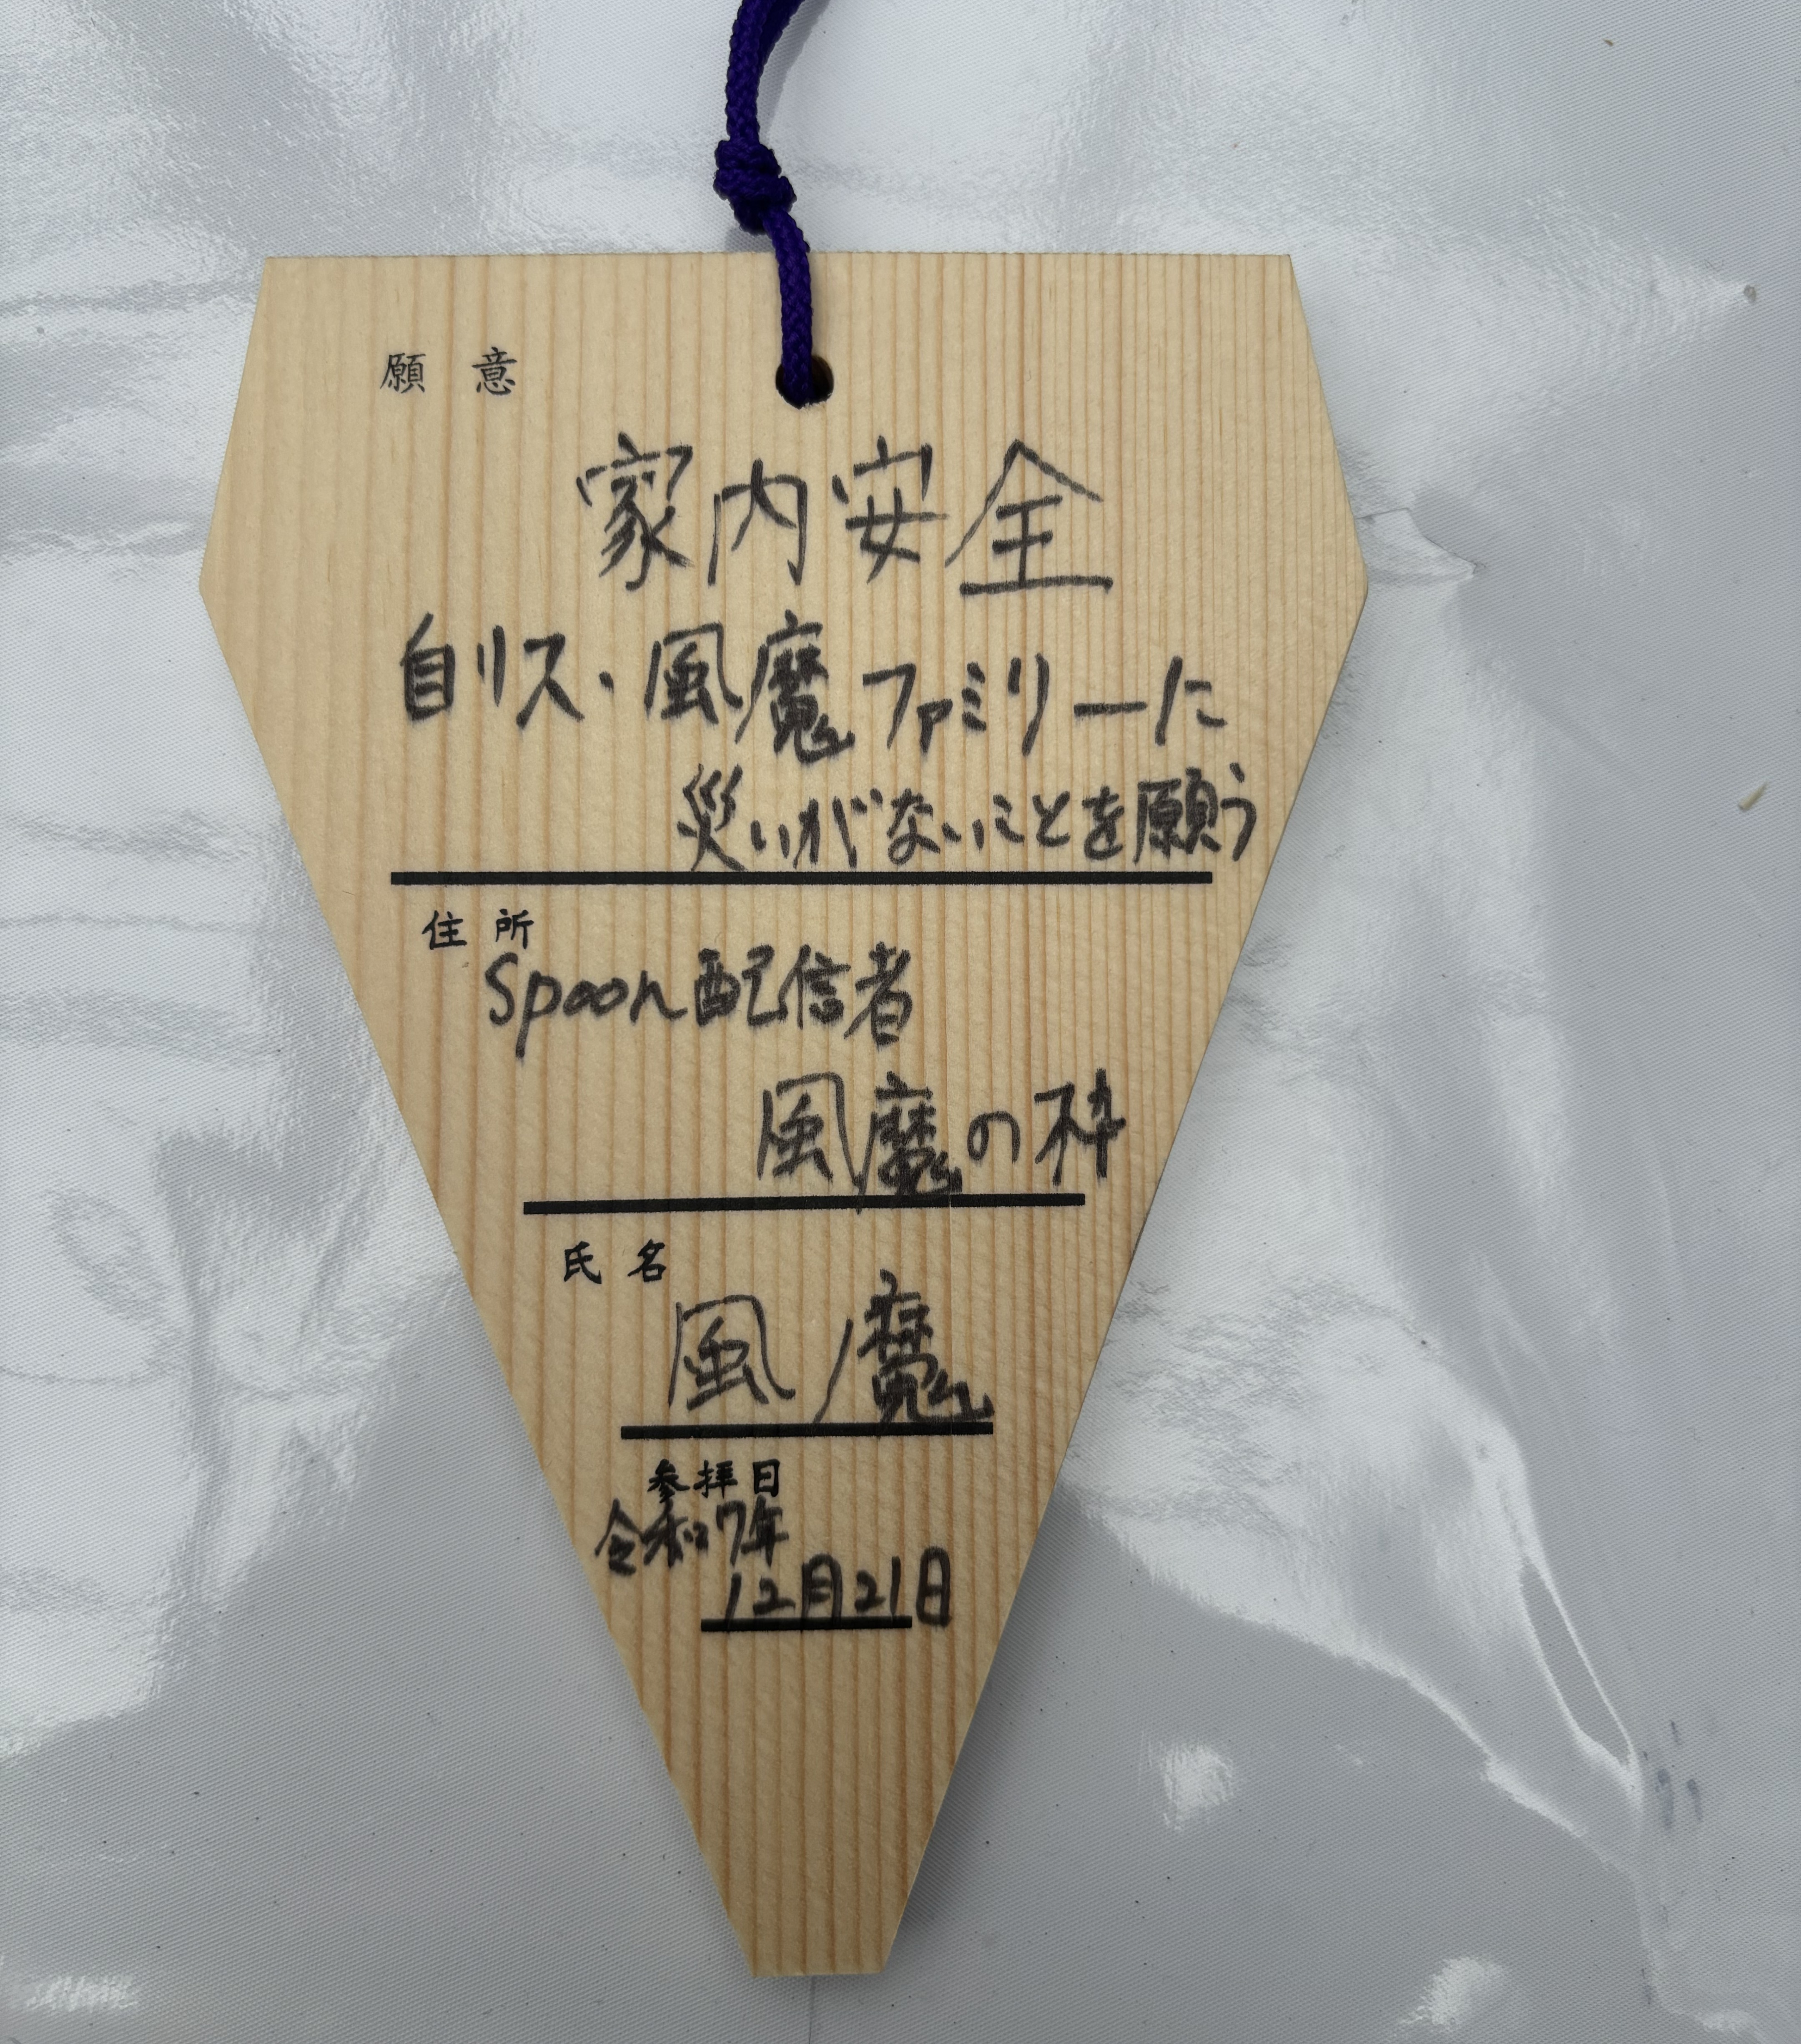 願意
家内安全
自リス・風魔ファミリーに
災いがないことを願う
住所
Spoon配信者
風魔の枠
氏名
風魔
参拝日
令和7年
12月21日